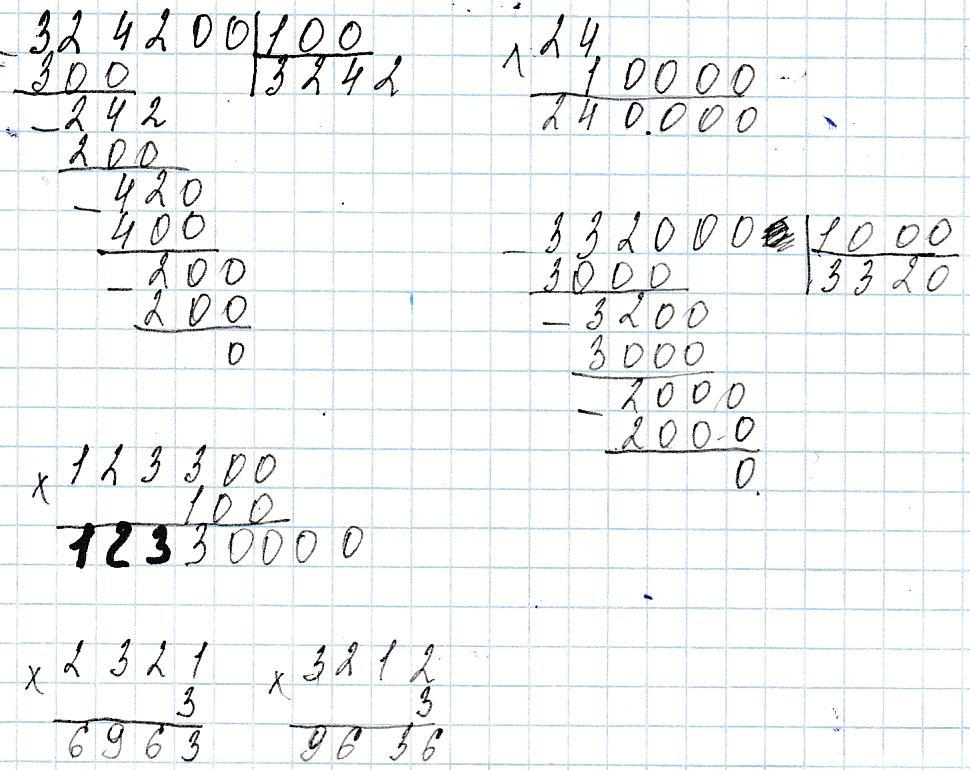 - 324200 | 100
300 | 3242
- 242
200
- 420
400
- 200
200
0
24
× 10000
240.000
- 332000 | 1000
3000 | 3320
- 3200
3000
- 2000
2000
0.
× 123300
100
12330000
× 2321
3
6963
× 3212
3
9636